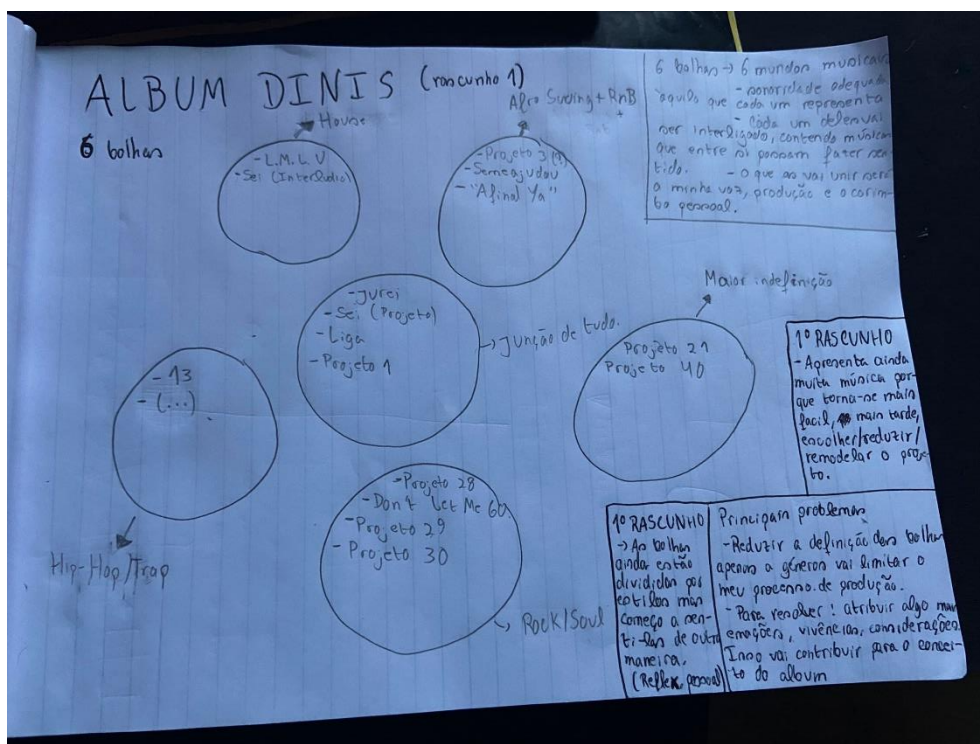 ALBUM DINIS (rascunho 1)
6 bolhas
House
- L.M.L.V
- Sei (Interlúdio)
Afro Swing + RnB
+
- Projeto 3 (?)
- Semeajudou
- "Afinal Ya"
6 bolhas → 6 mundos musicais
- sonoridade adequada
aquilo que cada um representa
- Cada um deles vai
ser interligado, contendo músicas
que entre si possam fazer sen-
tido. - O que as vai unir será
a minha voz, produção e o carim-
bo pessoal.
- Jurei
- Sei (Projeto)
- Liga
- Projeto 1
→ Junção de tudo.
Maior indefinição
Projeto 21
Projeto 40
- 13
- (...)
Hip-Hop/Trap
- Projeto 28
- Don't Let Me Go
- Projeto 29
- Projeto 30
Rock/Soul
1º RASCUNHO
- Apresenta ainda
muita música por-
que torna-se mais
facil, mais tarde,
escolher/reduzir/
remodelar o proje-
to.
1º RASCUNHO
→ As bolhas
ainda estão
divididas por
estilos mas
começo a sen-
ti-las de outra
maneira.
(Reflex. pessoal)
Principais problemas
- Reduzir a definição das bolhas
apenas a géneros vai limitar o
meu processo de produção.
- Para resolver: atribuir algo mais
emoções, vivências, considerações.
Isso vai contribuir para o concei-
to do album